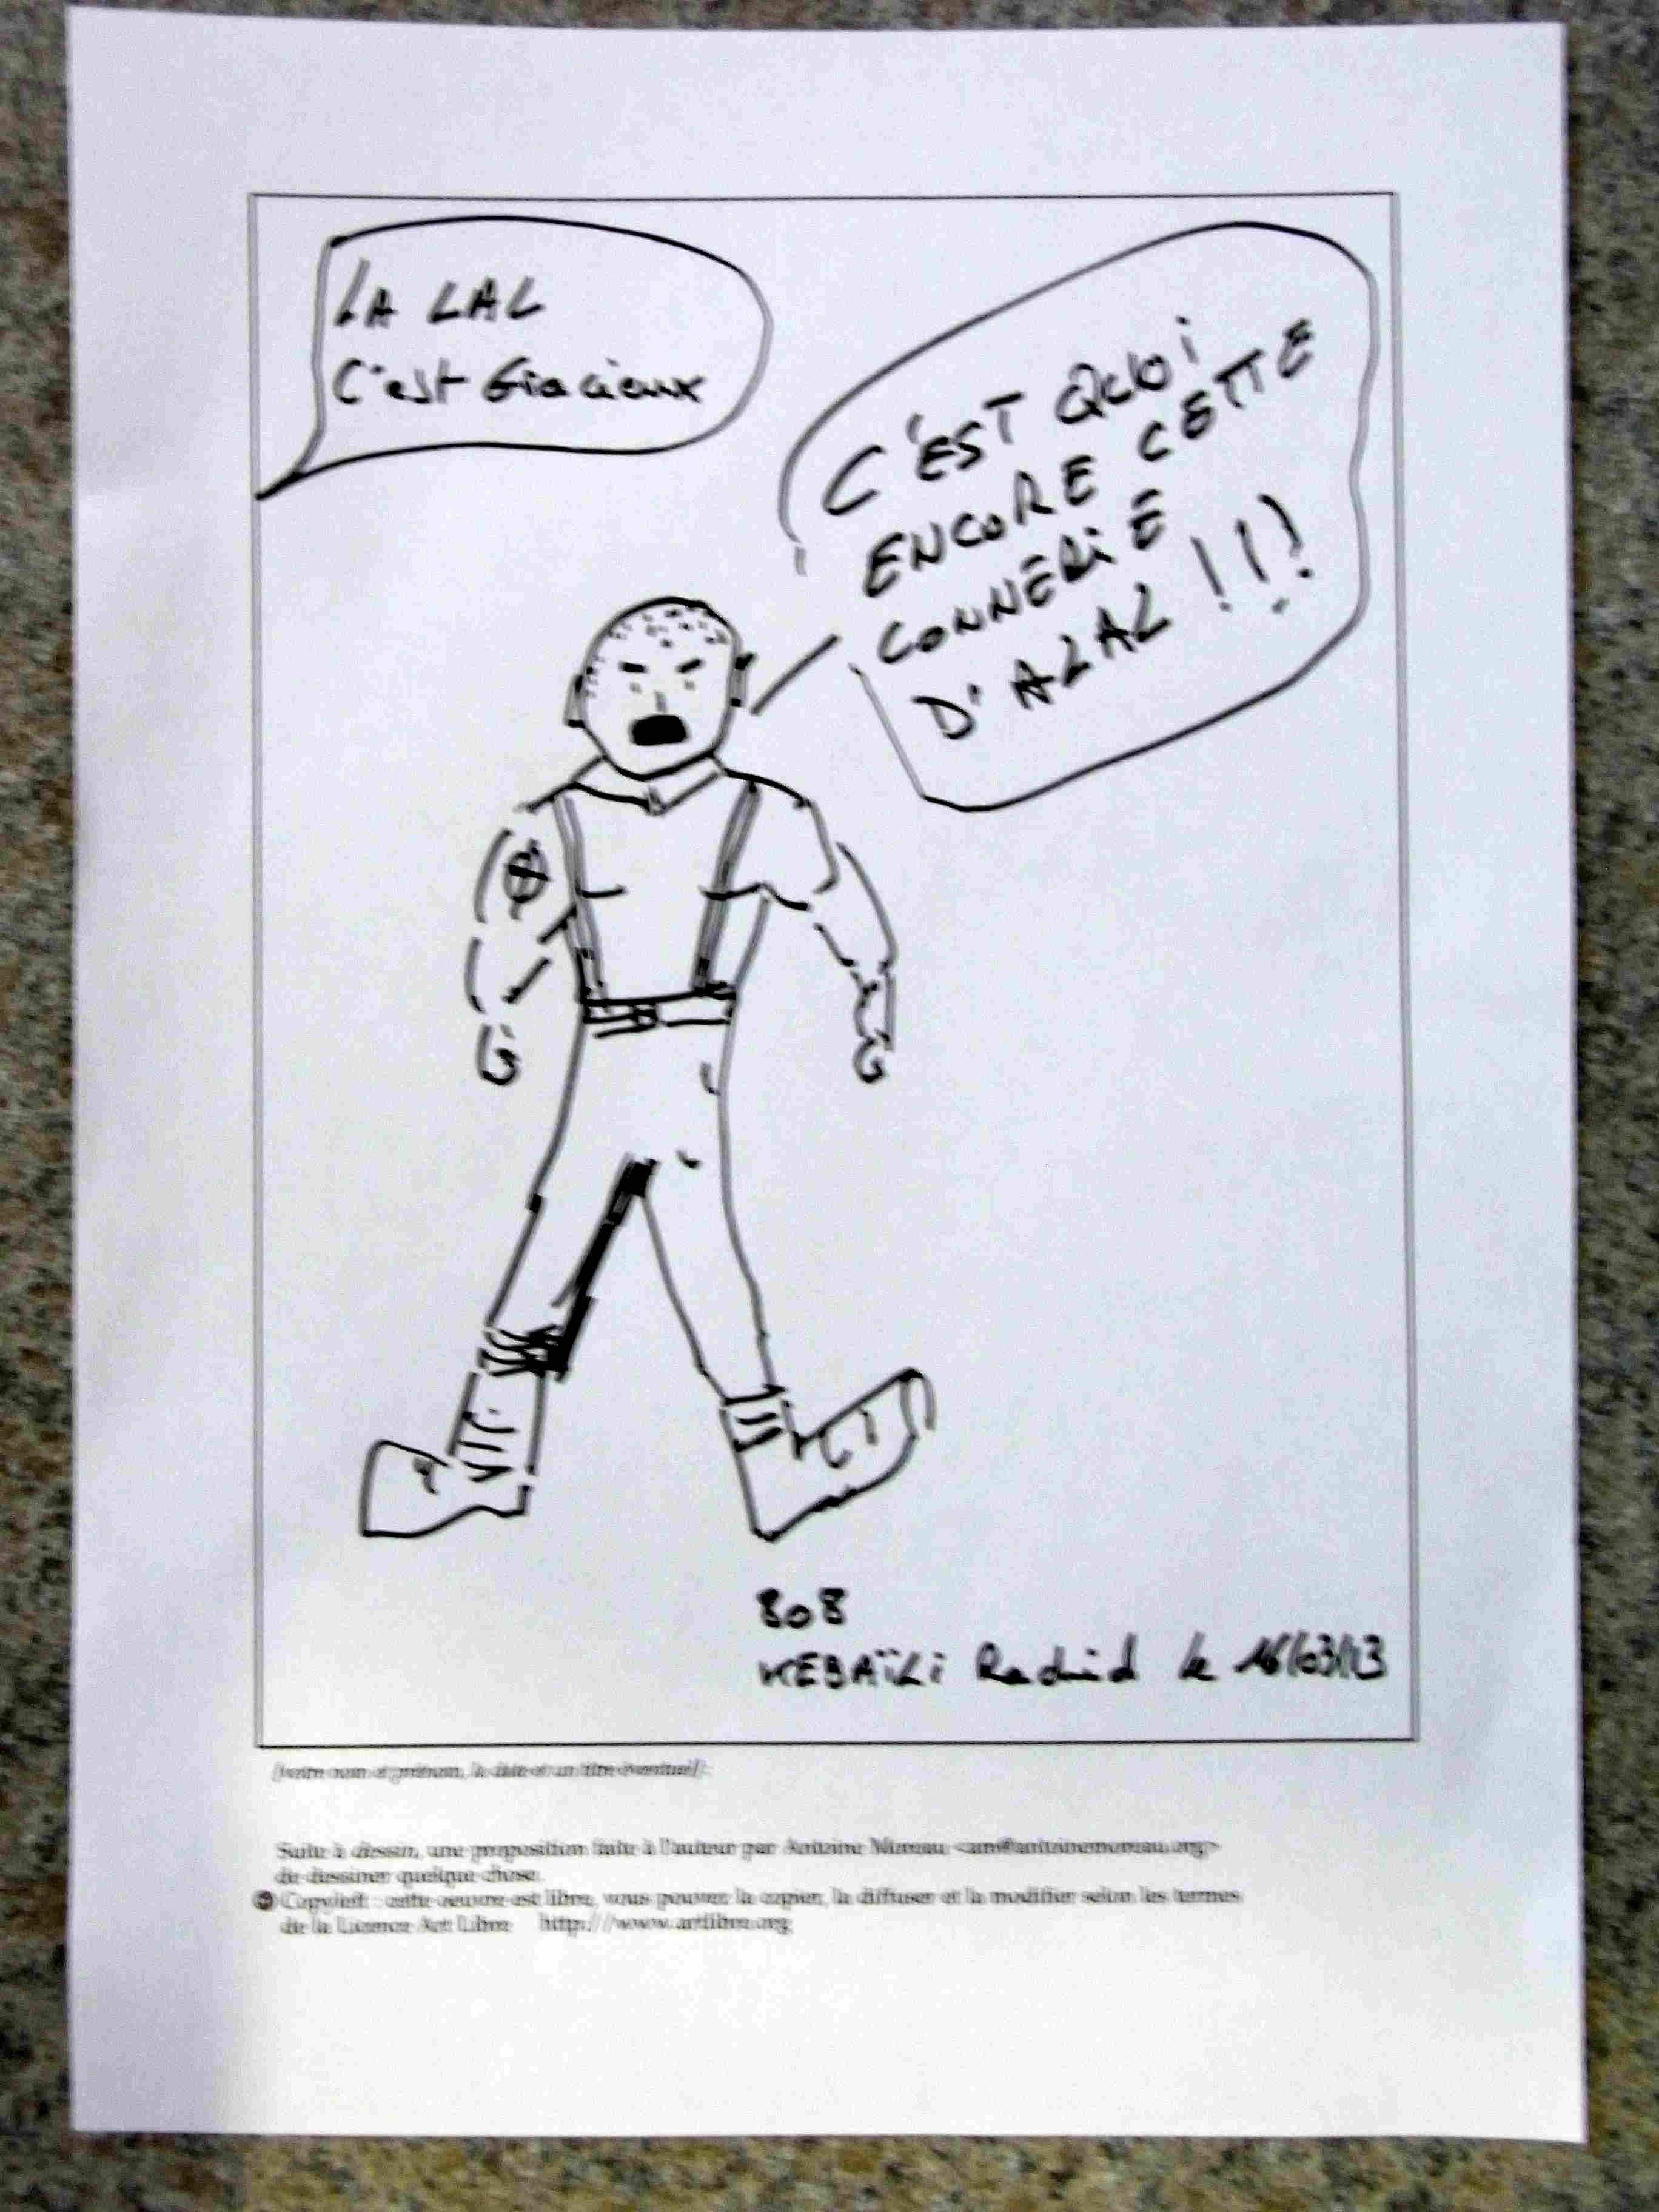 LA LAL
C'est Gracieux
C'EST QUOI
ENCORE CETTE
CONNERIE
D'ALAL !!!
808
KEBAÏLI Rachid le 16/03/13
[votre nom et prénom, la date et un titre éventuel].
Suite à dessin, une proposition faite à l'auteur par Antoine Moreau <am@antoinemoreau.org>
de dessiner quelque chose.
Copyleft : cette oeuvre est libre, vous pouvez la copier, la diffuser et la modifier selon les termes
de la Licence Art Libre http://www.artlibre.org